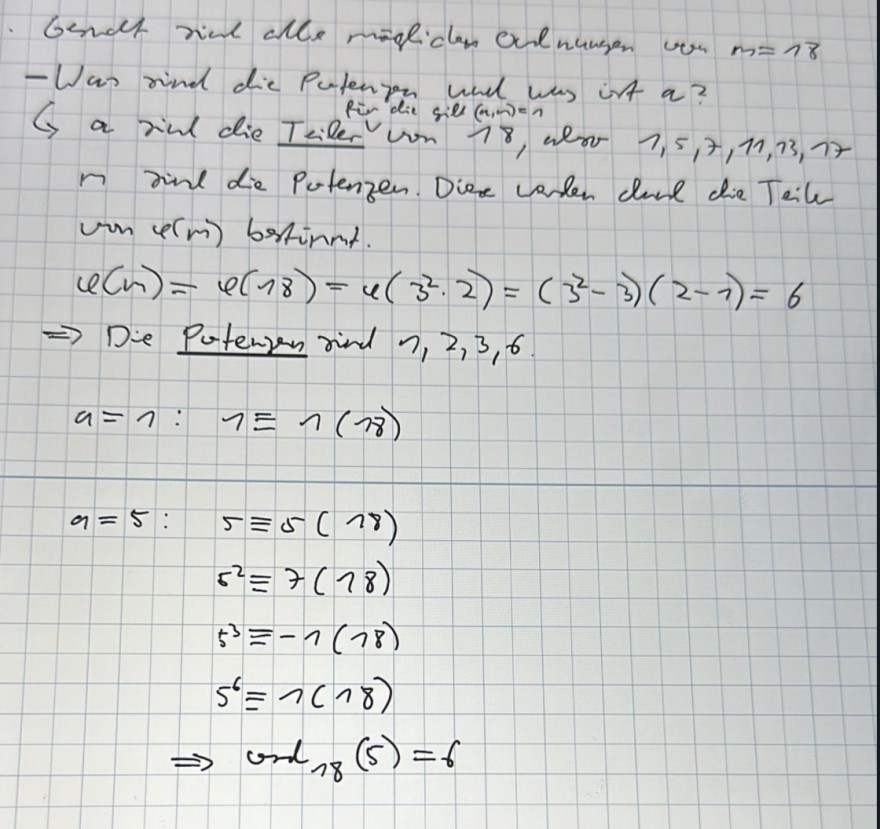 Gesucht sind alle möglichen Ordnungen von m = 18
- Was sind die Potenzen und was ist a?
für die gilt (a,m)=1
↳ a sind die Teiler von 18, also 1, 5, 7, 11, 13, 17
n sind die Potenzen. Diese werden durch die Teiler
von φ(m) bestimmt.
φ(m) = φ(18) = φ(3²·2) = (3²-3)(2-1) = 6
⇒ Die Potenzen sind 1, 2, 3, 6.
a = 1 : 1 ≡ 1 (18)
a = 5 : 5 ≡ 5 (18)
5² ≡ 7 (18)
5³ ≡ -1 (18)
5⁶ ≡ 1 (18)
⇒ ord₁₈(5) = 6